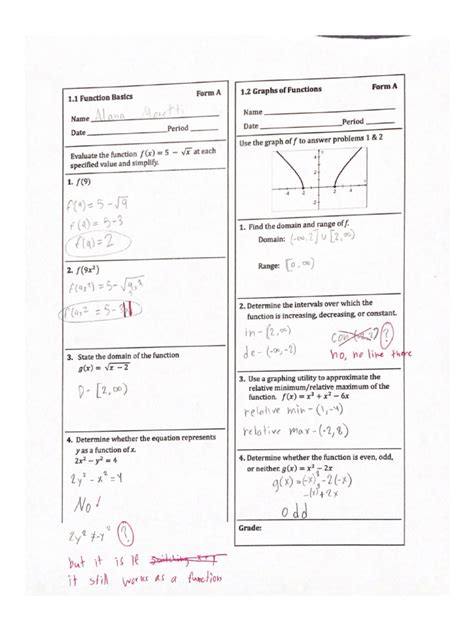 1.1 Function Basics Form A
Name Alana Moretti
Date Period
Evaluate the function f(x) = 5 − √x at each
specified value and simplify.
1. f(9)
f(9) = 5 - √9
f(9) = 5-3
f(9) = 2
2. f(9x²)
3. State the domain of the function
g(x) = √x − 2
D- [2,∞)
4. Determine whether the equation represents
y as a function of x.
2x² − y² = 4
2y² - x² = 4
No!
2y² ≠ -y² ?
but it is
it still works as a function
1.2 Graphs of Functions Form A
Name
Date Period
Use the graph of f to answer problems 1 & 2
1. Find the domain and range of f.
Domain: (-∞,2] ∪ [2,∞)
Range: [0,∞)
2. Determine the intervals over which the
function is increasing, decreasing, or constant.
in - (2,∞)
de - (-∞,-2)
?
no, no line there
3. Use a graphing utility to approximate the
relative minimum/relative maximum of the
function. f(x) = x³ + x² − 6x
relative min - (1,-4)
relative max - (-2,8)
4. Determine whether the function is even, odd,
or neither. g(x) = x³ − 2x
g(x) = (-x)³ - 2(-x)
odd
Grade: